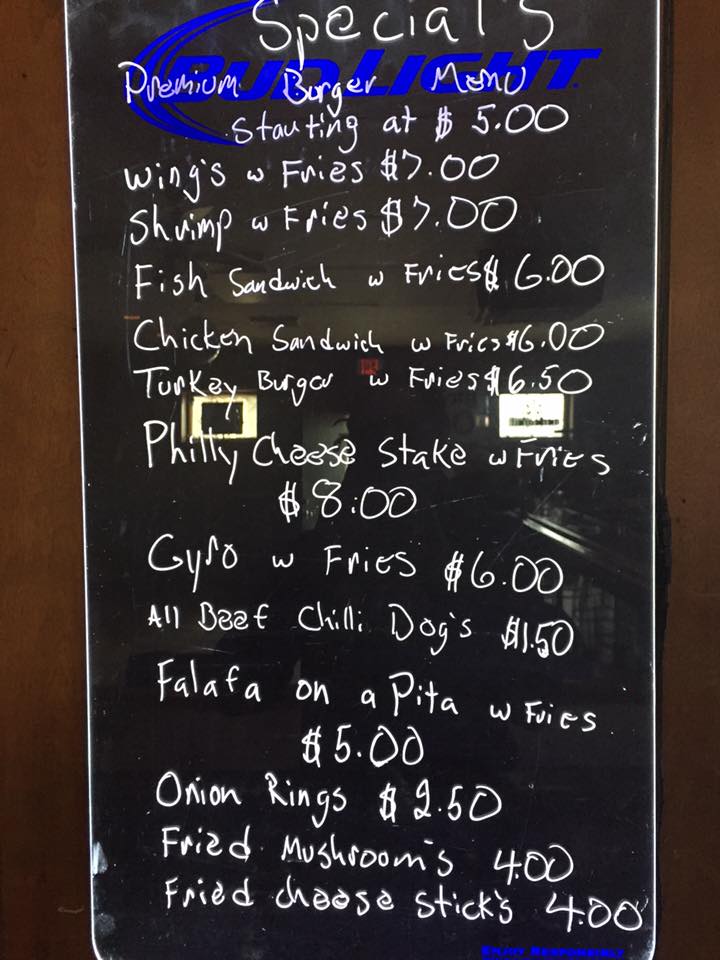 Special's
BUD LIGHT
Premium Burger Menu
Starting at $ 5.00
Wing's w Fries $7.00
Shrimp w Fries $7.00
Fish Sandwich w Fries $6.00
Chicken Sandwich w Fries $6.00
Turkey Burger w Fries $6.50
Philly Cheese Stake w Fries
$8.00
Gyro w Fries $6.00
All Beef Chilli Dog's $1.50
Falafa on a Pita w Fries
$5.00
Onion Rings $2.50
Fried Mushroom's 4.00
Fried cheese stick's 4.00
ENJOY RESPONSIBLY